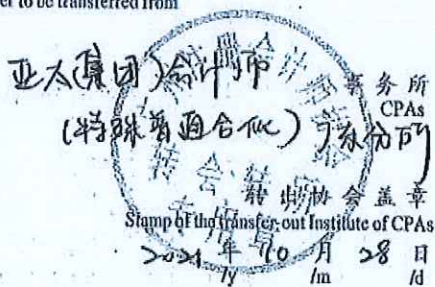 er to be transferred from
亚太(集团)会计师
事务所
CPAs
(特殊普通合伙)广东分所
转出协会盖章
Stamp of the transfer-out Institute of CPAs
2021 年 10 月 28 日
/y /m /d